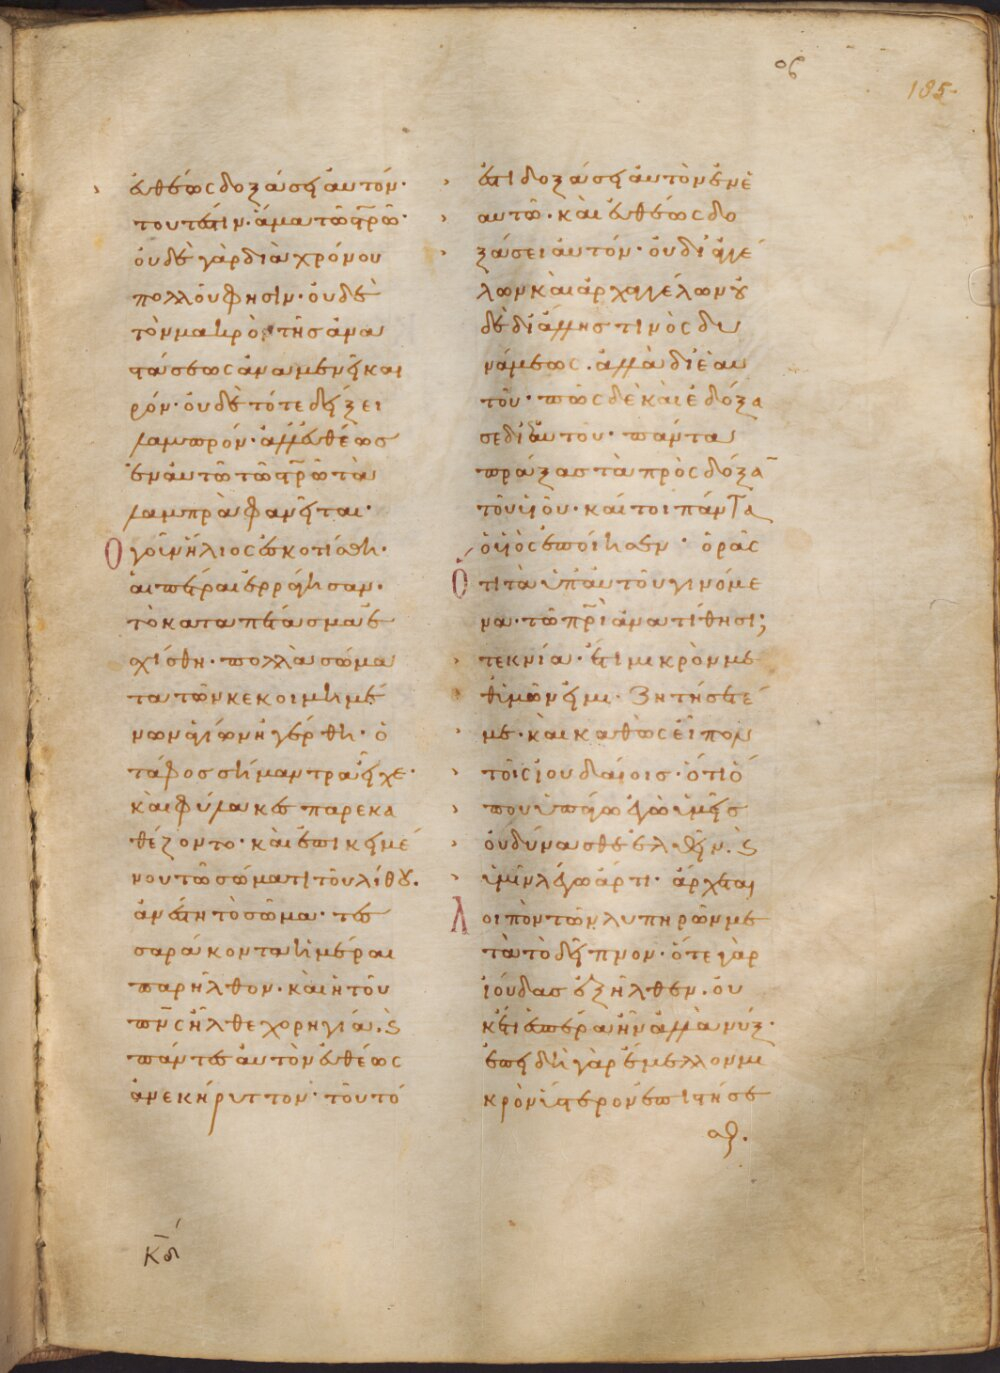 ος
185
εὐθέως δοξάσει αὐτόν·
τουτέστιν· ἅμα τῶ στ̅ρῶ·
οὐδὲ γὰρ διὰ χρόνου
πολλοῦ φησὶν· οὐδὲ
τὸν μακρὸν τῆς ἀνα
στάσεως ἀναμένει και
ρόν· οὐδὲ τότε δείξει
λαμπρόν· ἀλλ' εὐθέως
ἐν αὐτῶ τῶ στ̅ρῶ τὰ
λαμπρὰ φανεῖται·
Ο γοῦν ἥλιος ἐσκοτίσθη·
αἱ πέτραι ἐρράγησαν·
τὸ καταπέτασμα ἐ
σχίσθη· πολλὰ σώμα
τα τῶν κεκοιμημέ
νων ἁγίων ἠγέρθη· ὁ
τάφος σήμαντρα εἶχε·
καὶ φύλακες παρεκα
θέζοντο· καὶ ἐπικειμέ
νου τῶ σώματι τοῦ λίθου.
ἀνέστη τὸ σῶμα· τεσ
σαράκοντα ἡμέραι
παρῆλθον· καὶ ἡ τοῦ
πν̅ς ἦλθε χορηγία. ϗ
πάντες αὐτὸν εὐθέως
ἀνεκήρυττον· τοῦτό
ἐστι δοξάσει αὐτὸν ἐν ἑ
αυτῶ· καὶ εὐθέως δο
ξάσει αὐτόν· οὐ δι' ἀγγέ
λων καὶ ἀρχαγγέλων οὐ
δὲ δι' ἄλλης τινὸς δυ
νάμεως. ἀλλὰ δι' ἑαυ
τοῦ· πῶς δὲ καὶ ἐδόξα
σε δι' ἑαυτοῦ· πάντα
πράξας τὰ πρὸς δόξα̅
τοῦ υἱοῦ· καί τοι πάντα
ὁ υἱὸς ἐποίησεν· ὁρᾶς
Ὅτι τὰ ὑπ' αὐτοῦ γινόμε
να· τῶ πρ̅ὶ ἀνατίθησι;
τεκνία· ἔτι μικρὸν με
θ' ὑμῶν εἰμι· Ζητήσετέ
με· καὶ καθὼς εἶπον
τοῖς ἰουδαίοις· ὅτι ὅ
που ὑπάγω ἐγὼ ὑμεῖς
οὐ δύνασθε ἐλθεῖν. ϗ
ὑμῖν λέγω ἄρτι· ἄρχεται
Λοιπὸν τῶν λυπηρῶν με
τὰ τὸ δεῖπνον· ὅτε γὰρ
ἰούδας ἐξῆλθεν. οὐ
κέτι ἑσπέρα ἦν ἀλλὰ νύξ·
ἐπειδὴ γὰρ ἔμελλον μι
κρὸν ὕστερον ἐπιστήσε
σθ.
κδ